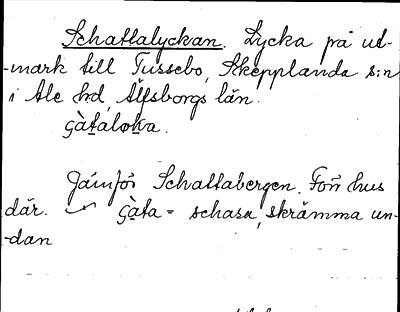 Schattalyckan. Lycka på ut-
-mark till Tussebo, Skepplanda s:n
i Ale hd, Älfsborgs län.
Jämför Schattabergen. Förr hus
där. = schasa, skrämma un-
-dan